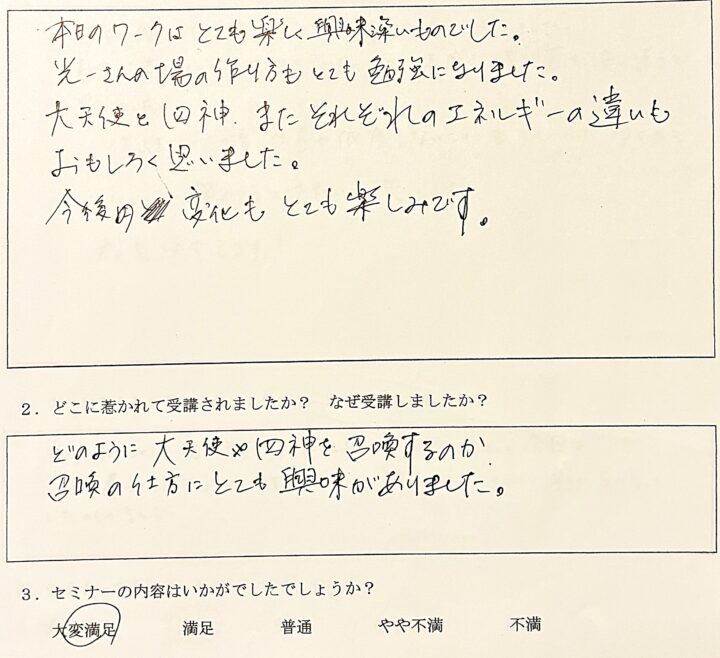 本日のワークはとても楽しく興味深いものでした。
光一さんの場の作り方もとても勉強になりました。
大天使と四神、またそれぞれのエネルギーの違いも
おもしろく思いました。
今後の変化もとても楽しみです。
2．どこに惹かれて受講されましたか？　なぜ受講しましたか？
どのように大天使や四神を召喚するのか
召喚の仕方にとても興味がありました。
3．セミナーの内容はいかがでしたでしょうか？
大変満足　満足　普通　やや不満　不満